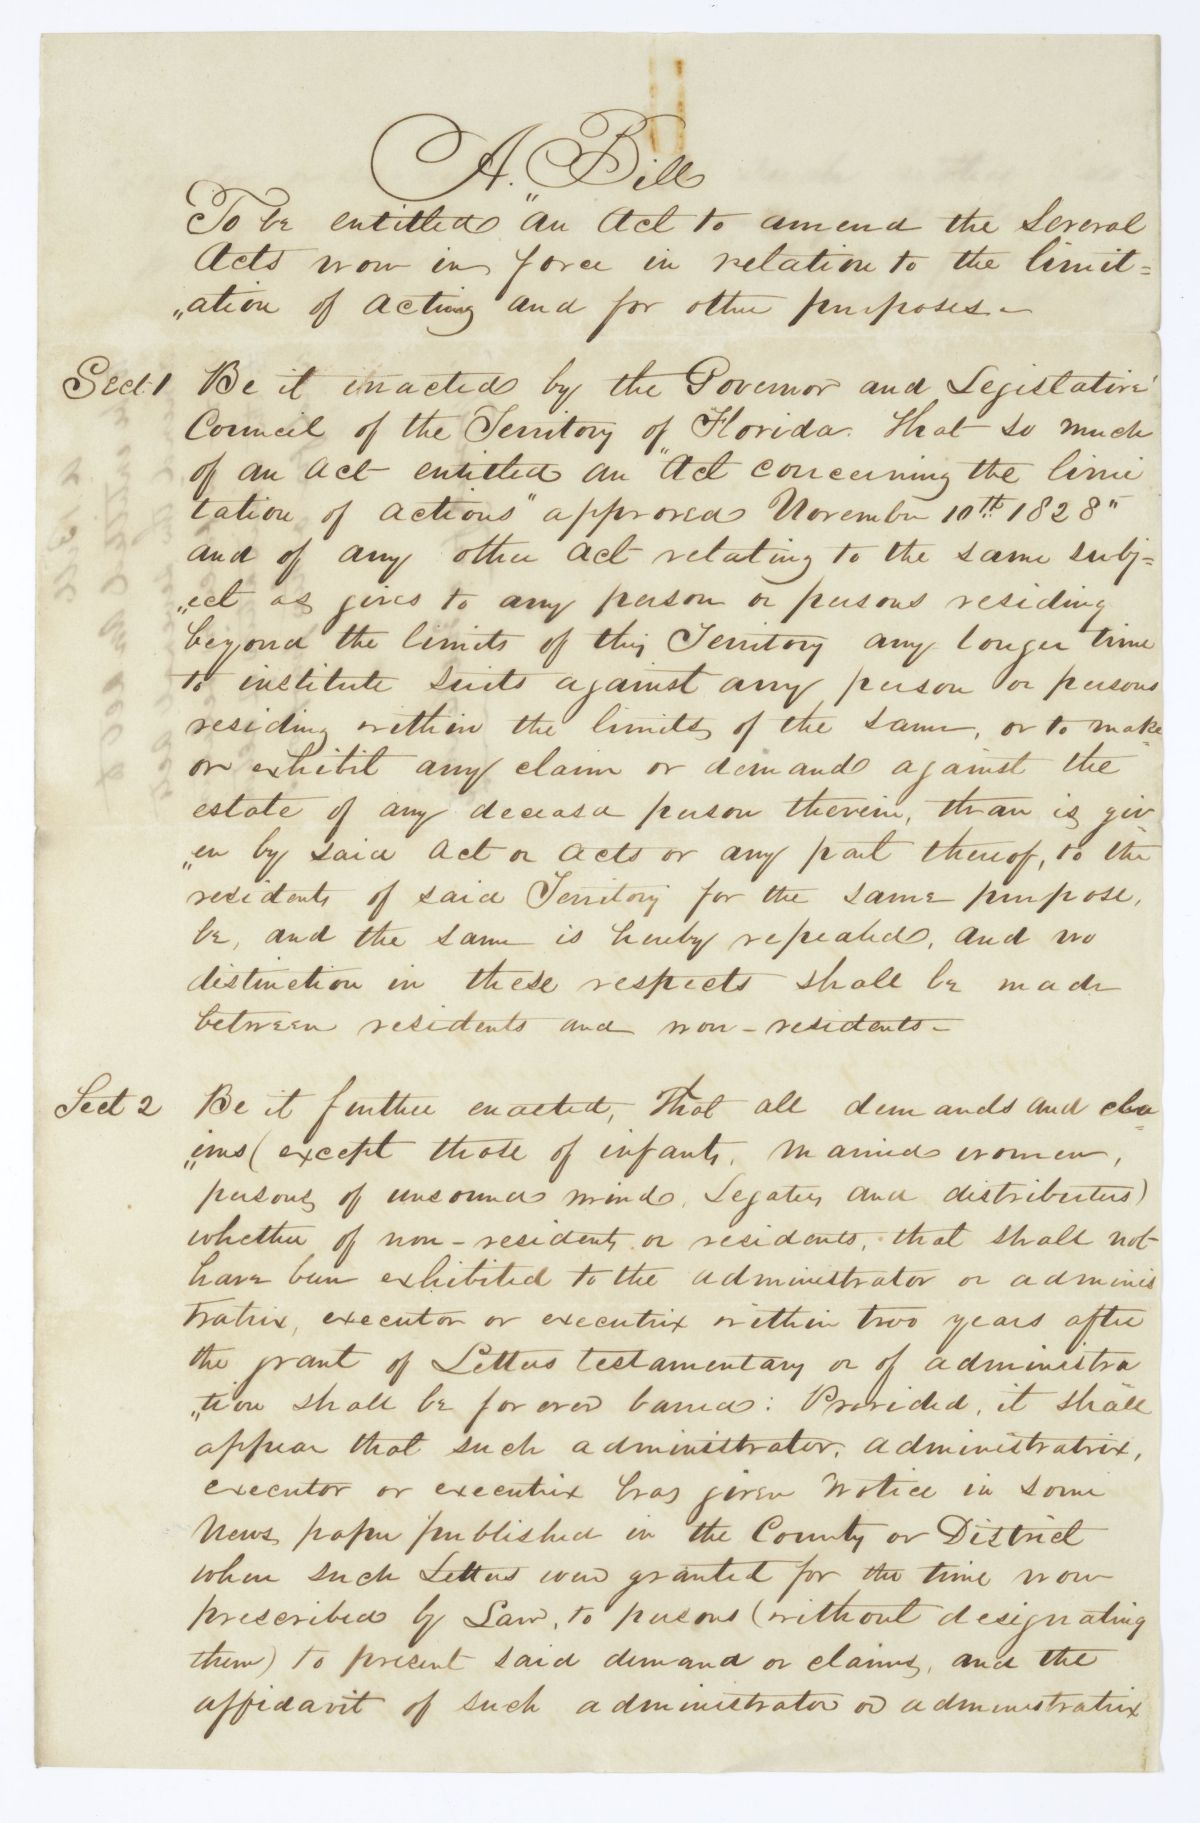 A. Bill
To be entitled "an Act to amend the Several
Acts now in force in relation to the limit=
"ation of actions and for other purposes.
Sect. 1 Be it enacted by the Governor and Legislative
Council of the Territory of Florida. That so much
of an Act entitled an "Act concerning the limi
tation of actions" approved November 10th 1828"
and of any other Act relating to the same subj=
"ect as gives to any person or persons residing
beyond the limits of this Territory any longer time
to institute suits against any person or persons
residing within the limits of the same, or to make
or exhibit any claim or demand against the
estate of any deceased person therein, than is giv
"en by said Act or Acts or any part thereof, to the
residents of said Territory for the same purpose,
be, and the same is hereby repealed, and no
distinction in these respects shall be made
between residents and non-residents-
Sect 2 Be it further enacted, That all demands and cla=
"ims (except those of infants, married women,
persons of unsound mind, Legatees and distributees)
whether of non-residents or residents, that shall not
have been exhibited to the administrator or adminis
tratrix, executor or executrix within two years after
the grant of Letters testamentary or of administra
"tion shall be forever barred: Provided, it shall
appear that such administrator, administratrix,
executor or executrix has given notice in some
News paper published in the County or District
where such Letters were granted for the time now
prescribed by Law, to persons (without designating
them) to present said demand or claims, and the
affidavit of such administrator or administratrix